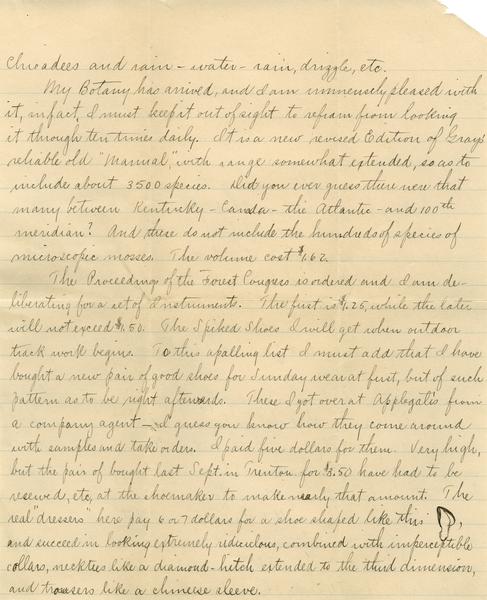 Chicadees and rain - water - rain, drizzle, etc.
My Botany has arrived, and I am immensely pleased with
it, in fact, I must keep it out of sight to refrain from looking
it through ten times daily. It is a new revised Edition of Grays'
reliable old "Manual," with range somewhat extended, so as to
include about 3500 species. Did you ever guess there were that
many between Kentucky - Canada - the Atlantic - and 100th
meridian? And these do not include the hundreds of species of
microscopic mosses. The volume cost $1.62.
The Proceedings of the Forest Congress is ordered and I am de-
liberating for a set of Instruments. The first is $1.25, while the later
will not exceed $1.50. The Spiked Shoes I will get when outdoor
track work begins. To this apalling list I must add that I have
bought a new pair of good shoes for Sunday wear at first, but of such
pattern as to be right afterwards. These I got over at Applegate's from
a company agent - I guess you know how they come around
with samples and take orders. I paid five dollars for them. Very high,
but the pair of bought last Sept. in Trenton for $3.50 have had to be
resewed, etc, at the shoemaker to make nearly that amount. The
real "dressers" here pay 6 or 7 dollars for a shoe shaped like this ,
and succeed in looking extremely ridiculous, combined with imperceptible
collars, neckties like a diamond-hitch extended to the third dimension,
and trousers like a chinese sleeve.